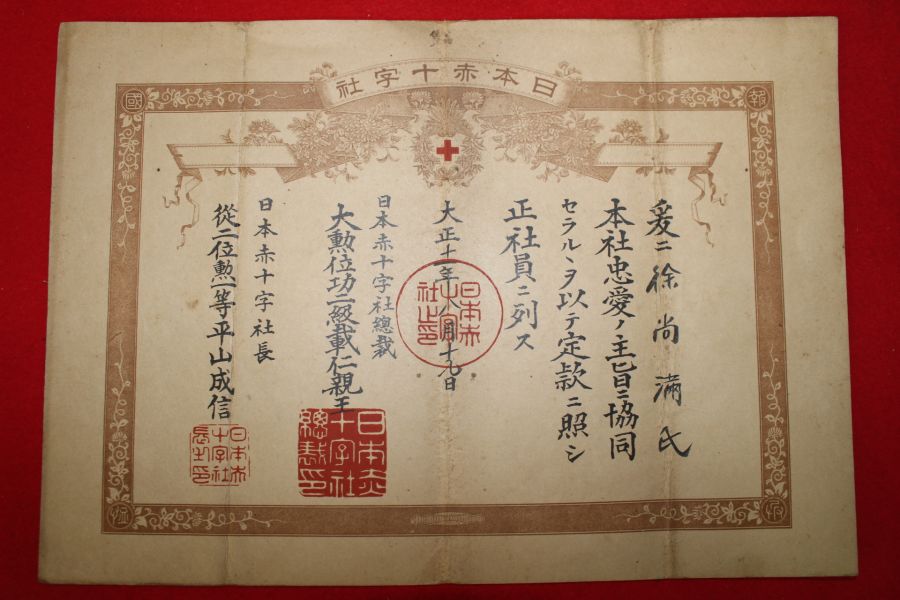 日本赤十字社
報國
恤兵
爰ニ徐尚満氏
本社忠愛ノ主旨ニ協同
セラルヽヲ以テ定款ニ照シ
正社員ニ列ス
大正十一年十八月十九日
日本赤十字社總裁
大勲位功二級載仁親王
日本赤十字社長
從二位勲一等平山成信
日本赤十字社之印
日本赤十字社總裁印
日本赤十字社長之印